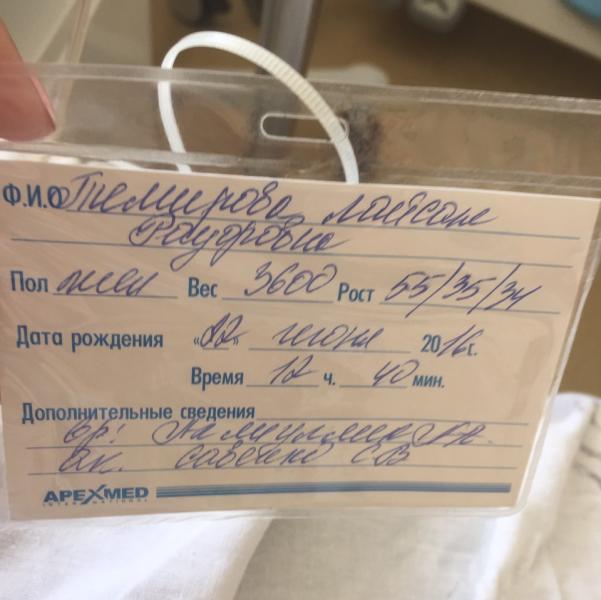 Ф.И.О Темирова Ляйсан
Рауфовна
Пол жен Вес 3600 Рост 55/35/34
Дата рождения «12» июня 2016г.
Время 12 ч. 40 мин.
Дополнительные сведения
вр:
ак. СВ
APEXMED
INTERNATIONAL